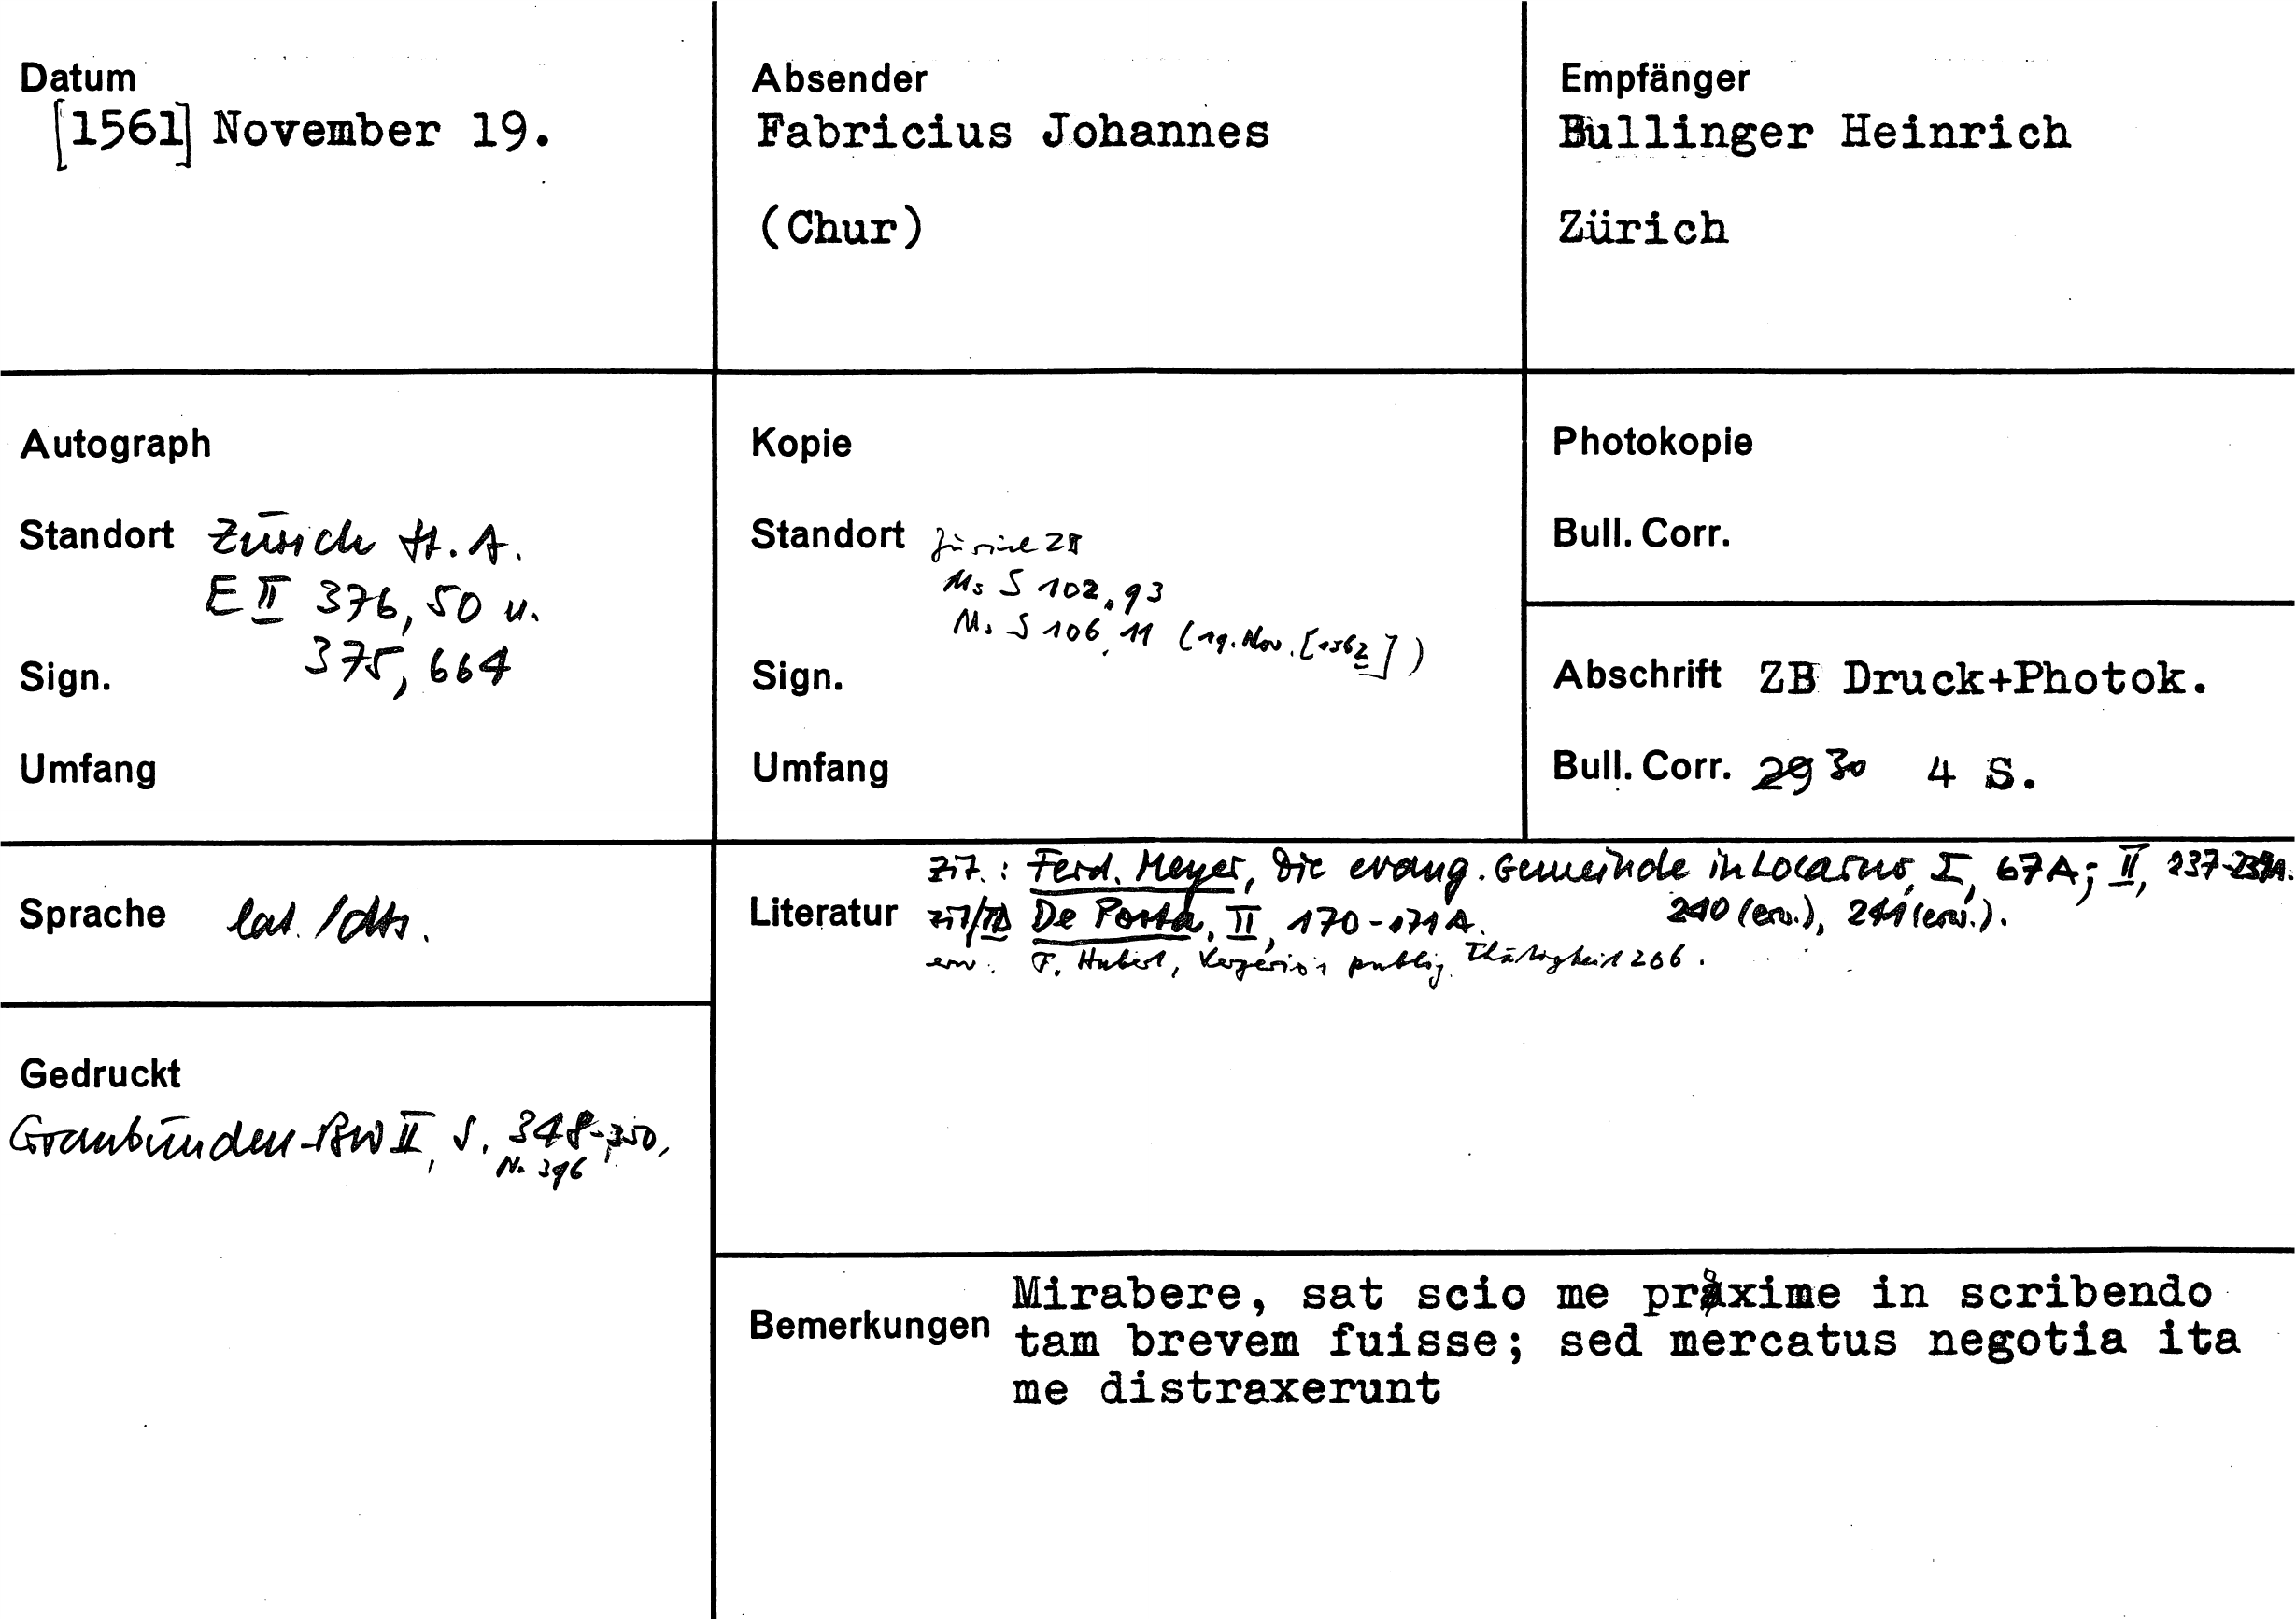 Datum
[1561] November 19.
Absender
Fabricius Johannes
(Chur)
Empfänger
Bullinger Heinrich
Zürich
Autograph
Standort Zürich St.A.
E II 376, 50 u.
375, 664
Sign.
Umfang
Kopie
Standort Zürich ZB
Ms S 102, 93
Ms S 106, 11 (19. Nov. [1562])
Sign.
Umfang
Photokopie
Bull. Corr.
Abschrift ZB Druck+Photok.
Bull. Corr. 2930 4 S.
Sprache lat./dts.
Gedruckt
Graubünden-BW II, S. 348-350,
N. 396
zit.: Ferd. Meyer, Die evang. Gemeinde in Locarno, I, 67A; II, 237-239A.
240 (erw.), 241 (erw.).
Literatur De Porta, II, 170-171 A.
erw. F. Hubert, Vergerio's publiz. Thätigkeit 266.
Bemerkungen
Mirabere, sat scio me proxime in scribendo
tam brevem fuisse; sed mercatus negotia ita
me distraxerunt